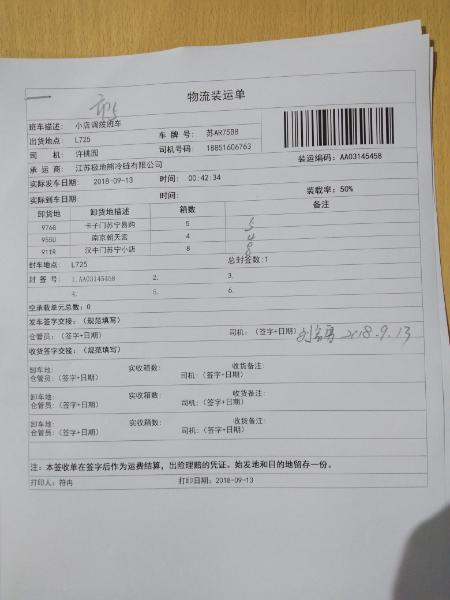 物流装运单
班车描述: 小店调拨班车
出货地点: L725 车 牌 号: 苏AR75B8
司 机: 许桃园 司机号码: 18851606763
承 运 商: 江苏极地熊冷链有限公司 装运编码: AA03145458
实际发车日期: 2018-09-13 时间: 00:42:34
实际到车日期: 时间: 装载率: 50%
卸货地 卸货地描述 箱数 备注
976B 卡子门苏宁易购 5 5
955U 南京朝天宫 4 4
911R 汉中门苏宁小店 8 8
封车地点: L725 总封签数:1
封 签 号: 1.AA03145458 2. 3.
4. 5. 6.
空承载单元总数: 0
发车签字交接: (规范填写)
仓管员: (签字+日期) 司机: (签字+日期) 2018.9.13
收货签字交接: (规范填写)
卸车地: 实收箱数: 收货备注:
仓管员: (签字+日期) 司机: (签字+日期)
卸车地: 实收箱数: 收货备注:
仓管员: (签字+日期) 司机: (签字+日期)
卸车地: 实收箱数: 收货备注:
仓管员: (签字+日期) 司机: (签字+日期)
注: 本签收单在签字后作为运费结算, 出险理赔的凭证。始发地和目的地留存一份。
打印人: 符冉 打印日期: 2018-09-13